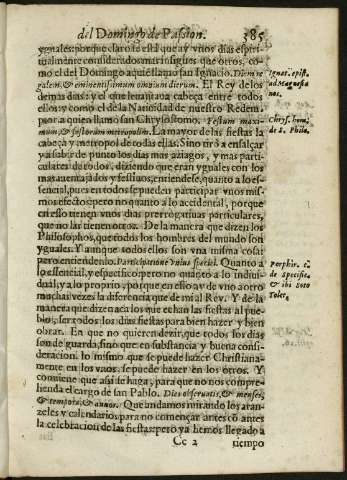 del Domingo de Passion. 385
yguales: porque claro está que ay vnos dias espiri-
tualmente considerados mas insignes que otros, co-
mo el del Domingo a quien llamó san Ignacio, Diem re
galem, & eminentissimum omnium dierum. El Rey de los
demas dias: y el que leuantaua cabeça entre todos
ellos: y como el de la Natiuidad de nuestro Redem-
ptor a quien llamò san Chrysostomo, Festum maxi-
mum, & festorum metropolim. La mayor de las fiestas la
cabeça y metropol de todas ellas. Sino tirò a ensalçar
y a subir de punto los dias mas aziagos, y mas parti-
culares de todos, diziendo que eran yguales con los
mas auentajados y festiuos, entiendese, quanto a lo es-
sencial, pues en todos se pueden participar vnos mis-
mos efectos: pero no quanto a lo accidental, porque
en esso tienen vnos dias prerrogatiuas particulares,
que no las tienen otros. De la manera que dizen los
Philosophos, que todos los hombres del mundo son
yguales. Y aunque todos ellos son vna misma cosa:
pero entiendenlo, Participatione vnius speciei. Quanto a
lo essencial, y especifico: pero no quanto a lo indiui-
dual, y a lo proprio, porque en esso ay de vno a otro
muchas vezes la diferencia que de mi al Rey. Y de la
manera que dizen acà los que echan las fiestas al pue-
blo, ser todos los dias fiestas para bien hazer y bien
obrar. En que no quieren dezir, que todos los dias
son de guarda, sino que en substancia y buena consi-
deracion, lo mismo que se puede hazer Christiana-
mente en los vnos, se puede hazer en los otros. Y
conuiene que assi se haga, para que no nos compre-
henda el cargo de san Pablo, Dies obseruatis, & menses,
& tempora, & annos. Que andamos mirando los aran-
zeles y calendarios, para no començar antes cō antes
la celebracion de las fiestas: pero ya hemos llegado a
Cc 2 tiempo
Ignat. epist.
ad Magnesia
nos.
Chrys. hom.
de S. Philo.
Porphir. c.
de specifica
& ibi Soto
Tolet.